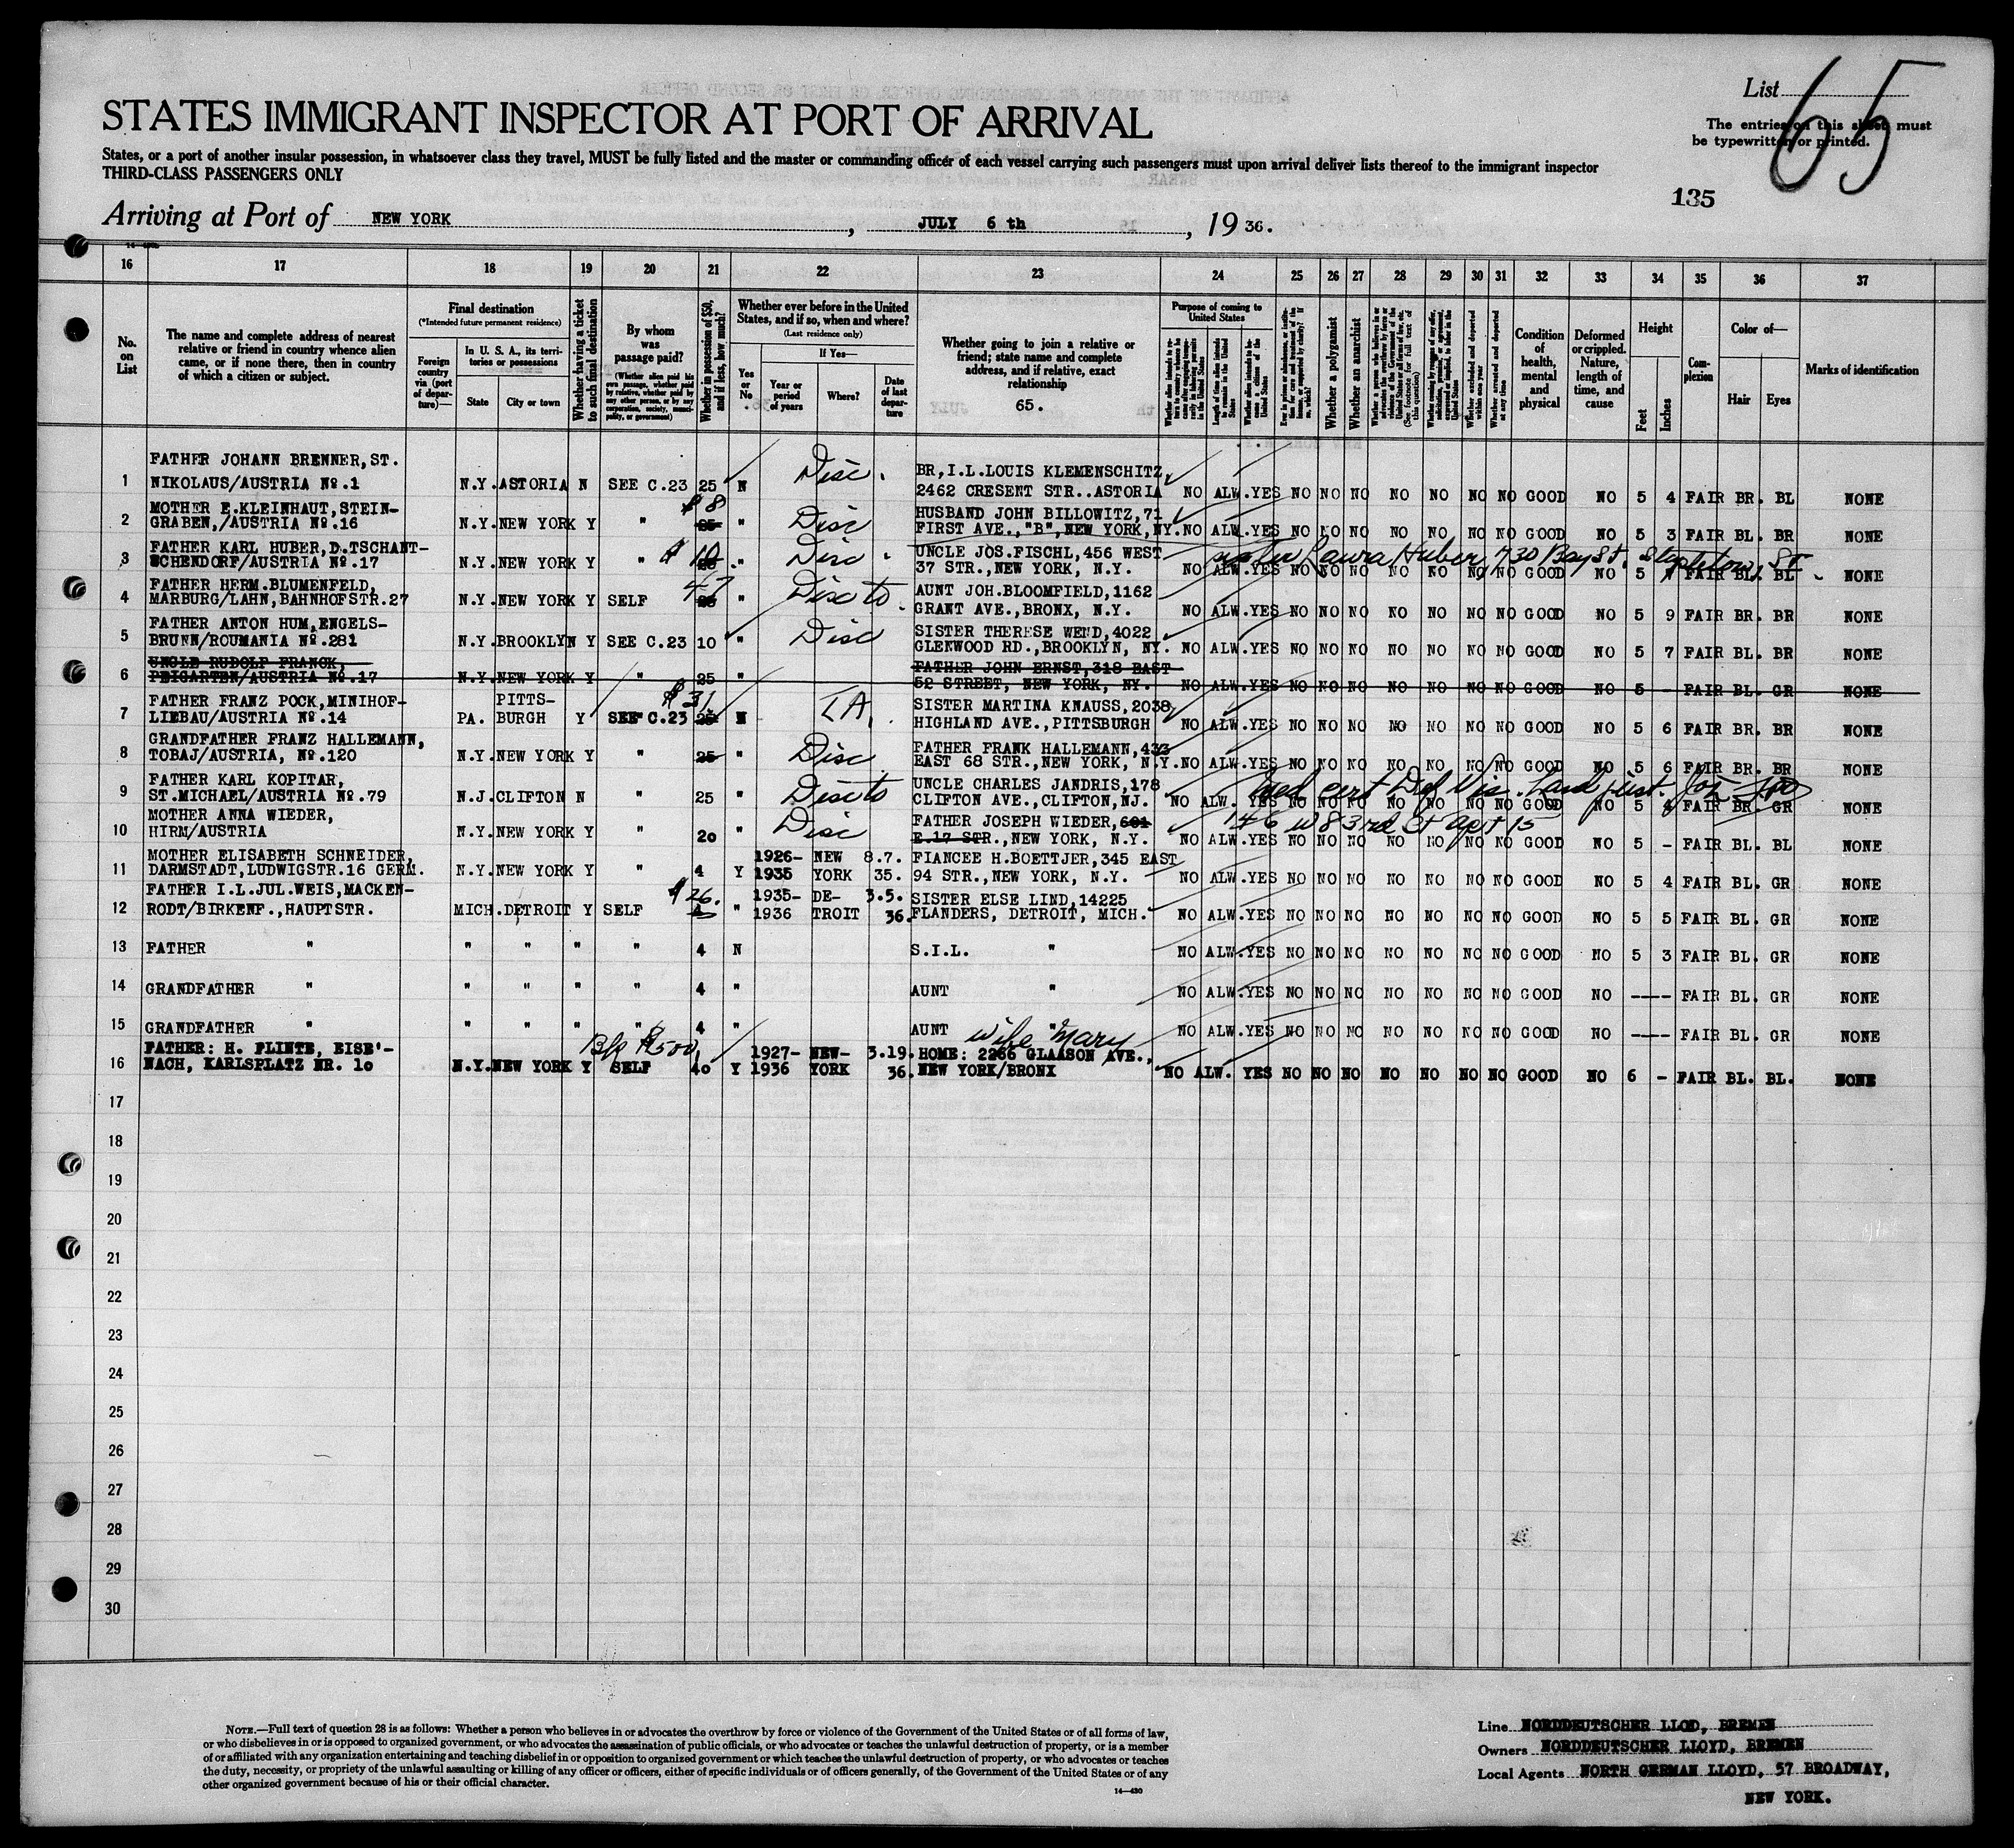 List 65
STATES IMMIGRANT INSPECTOR AT PORT OF ARRIVAL
The entries on this sheet must
be typewritten or printed.
States, or a port of another insular possession, in whatsoever class they travel, MUST be fully listed and the master or commanding officer of each vessel carrying such passengers must upon arrival deliver lists thereof to the immigrant inspector
THIRD-CLASS PASSENGERS ONLY
135
Arriving at Port of NEW YORK, JULY 6 th, 19 36.
16 17 18 19 20 21 22 23 24 25 26 27 28 29 30 31 32 33 34 35 36 37
No. on List
The name and complete address of nearest
relative or friend in country whence alien
came, or if none there, then in country
of which a citizen or subject.
Final destination
(*Intended future permanent residence)
Foreign country via (port of departure)—
In U. S. A., its territories or possessions
State City or town
Whether having a ticket to such final destination
By whom was passage paid?
(Whether alien paid his own passage, whether paid by relative, whether paid by any other person, or by any corporation, society, municipality, or government)
Whether in possession of $50, and if less, how much?
Whether ever before in the United States, and if so, when and where?
(Last residence only)
Yes or No
If Yes—
Year or period of years Where? Date of last departure
Whether going to join a relative or
friend; state name and complete
address, and if relative, exact
relationship
65.
Purpose of coming to United States
Whether a polygamist
Whether an anarchist
Condition of health, mental and physical
Deformed or crippled. Nature, length of time, and cause
Height
Feet Inches
Complexion
Color of—
Hair Eyes
Marks of identification
1 FATHER JOHANN BRENNER, ST.
NIKOLAUS/AUSTRIA Nº.1 N.Y. ASTORIA N SEE C.23 25 N Disc. BR,I.L.LOUIS KLEMENSCHITZ,
2462 CRESENT STR..ASTORIA NO ALW.YES NO NO NO NO NO NO NO GOOD NO 5 4 FAIR BR. BL NONE
2 MOTHER E.KLEINHAUT,STEIN-
GRABEN,/AUSTRIA Nº.16 N.Y. NEW YORK Y " $8 25 " Disc HUSBAND JOHN BILLOWITZ,71
FIRST AVE.,"B",NEW YORK,NY. NO ALW.YES NO NO NO NO NO NO NO GOOD NO 5 3 FAIR BL. BR NONE
3 FATHER KARL HUBER,D.TSCHANT-
SCHENDORF/AUSTRIA Nº.17 N.Y. NEW YORK Y " $10 " Disc. UNCLE JOS.FISCHL,456 WEST
sister Laura Huber, 730 Bay St. Stapleton, SI
37 STR.,NEW YORK, N.Y. NO ALW.YES NO NO NO NO NO NO NO GOOD NO 5 FAIR BL. BL NONE
4 FATHER HERM.BLUMENFELD,
MARBURG/LAHN,BAHNHOFSTR.27 N.Y. NEW YORK Y SELF 47 " Disc to AUNT JOH.BLOOMFIELD,1162
GRANT AVE.,BRONX, N.Y. NO ALW.YES NO NO NO NO NO NO NO GOOD NO 5 9 FAIR BR. BR NONE
5 FATHER ANTON HUM,ENGELS-
BRUNN/ROUMANIA Nº.281 N.Y. BROOKLYN Y SEE C.23 10 " Disc SISTER THERESE WEND,4022
GLENWOOD RD.,BROOKLYN, NY. NO ALW.YES NO NO NO NO NO NO NO GOOD NO 5 7 FAIR BL. BR NONE
6 UNCLE RUDOLF FRANCK,
PEIGARTEN/AUSTRIA Nº.17 N.Y. NEW YORK Y " 25 " FATHER JOHN ERNST,318 EAST
52 STREET, NEW YORK, NY. NO ALW.YES NO NO NO NO NO NO NO GOOD NO 5 - FAIR BL. GR NONE
7 FATHER FRANZ POCK,MINIHOF-
LIEBAU/AUSTRIA Nº.14 PA. PITTS-
BURGH Y SEE C.23 $31 25 N IA. SISTER MARTINA KNAUSS,2038
HIGHLAND AVE.,PITTSBURGH NO ALW.YES NO NO NO NO NO NO NO GOOD NO 5 6 FAIR BR. BR NONE
8 GRANDFATHER FRANZ HALLEMANN,
TOBAJ/AUSTRIA, Nº.120 N.Y. NEW YORK Y " 25 " Disc FATHER FRANK HALLEMANN,433
EAST 68 STR.,NEW YORK, N.Y. NO ALW.YES NO NO NO NO NO NO NO GOOD NO 5 6 FAIR BR. BR NONE
9 FATHER KARL KOPITAR,
ST.MICHAEL/AUSTRIA Nº.79 N.J. CLIFTON N " 25 " Disc to UNCLE CHARLES JANDRIS,178
Med cert Def Vis.
CLIFTON AVE.,CLIFTON,NJ. NO ALW. YES NO NO NO NO NO NO NO GOOD NO 5 4 FAIR BR. GR NONE
10 MOTHER ANNA WIEDER,
HIRM/AUSTRIA N.Y. NEW YORK Y " 20 " Disc FATHER JOSEPH WIEDER,601
146 W 83rd St apt 15
E.17 STR.,NEW YORK, N.Y. NO ALW.YES NO NO NO NO NO NO NO GOOD NO 5 - FAIR BL. BL NONE
11 MOTHER ELISABETH SCHNEIDER,
DARMSTADT,LUDWIGSTR.16 GERM. N.Y. NEW YORK Y " 4 Y 1926- NEW 8.7. FIANCEE H.BOETTJER,345 EAST
1935 YORK 35. 94 STR.,NEW YORK, N.Y. NO ALW.YES NO NO NO NO NO NO NO GOOD NO 5 4 FAIR BL. GR NONE
12 FATHER I.L.JUL.WEIS,MACKEN-
RODT/BIRKENF.,HAUPTSTR. MICH. DETROIT Y SELF $26. " 1935- DE- 3.5. SISTER ELSE LIND,14225
1936 TROIT 36. FLANDERS, DETROIT, MICH. NO ALW.YES NO NO NO NO NO NO NO GOOD NO 5 5 FAIR BL. GR NONE
13 FATHER " " " " " 4 N S.I.L. " NO ALW.YES NO NO NO NO NO NO NO GOOD NO 5 3 FAIR BL. GR NONE
14 GRANDFATHER " " " " " 4 " AUNT " NO ALW.YES NO NO NO NO NO NO NO GOOD NO ---- FAIR BL. GR NONE
15 GRANDFATHER " " " " " 4 " AUNT " NO ALW.YES NO NO NO NO NO NO NO GOOD NO ---- FAIR BL. GR NONE
wife Mary
16 FATHER: H. FLINTE, EISE'-
NACH, KARLSPLATZ NR. 1o N.Y. NEW YORK Y SELF 4o Y 1927- NEW- 3.19. HOME: 2266 GLAASON AVE.,
1936 YORK 36. NEW YORK/BRONX NO ALW. YES NO NO NO NO NO NO NO GOOD NO 6 - FAIR BL. BL. NONE
17
18
19
20
21
22
23
24
25
26
27
28
29
30
NOTE.—Full text of question 28 is as follows: Whether a person who believes in or advocates the overthrow by force or violence of the Government of the United States or of all forms of law,
or who disbelieves in or is opposed to organized government, or who advocates the assassination of public officials, or who advocates or teaches the unlawful destruction of property, or is a member
of or affiliated with any organization entertaining and teaching disbelief in or opposition to organized government or which teaches the unlawful destruction of property, or who advocates or teaches
the duty, necessity, or propriety of the unlawful assaulting or killing of any officer or officers, either of specific individuals or of officers generally, of the Government of the United States or of any
other organized government because of his or their official character.
14—430
Line NORDDEUTSCHER LLOD, BREMEN
Owners NORDDEUTSCHER LLOYD, BREMEN
Local Agents NORTH GERMAN LLOYD, 57 BROADWAY,
NEW YORK.